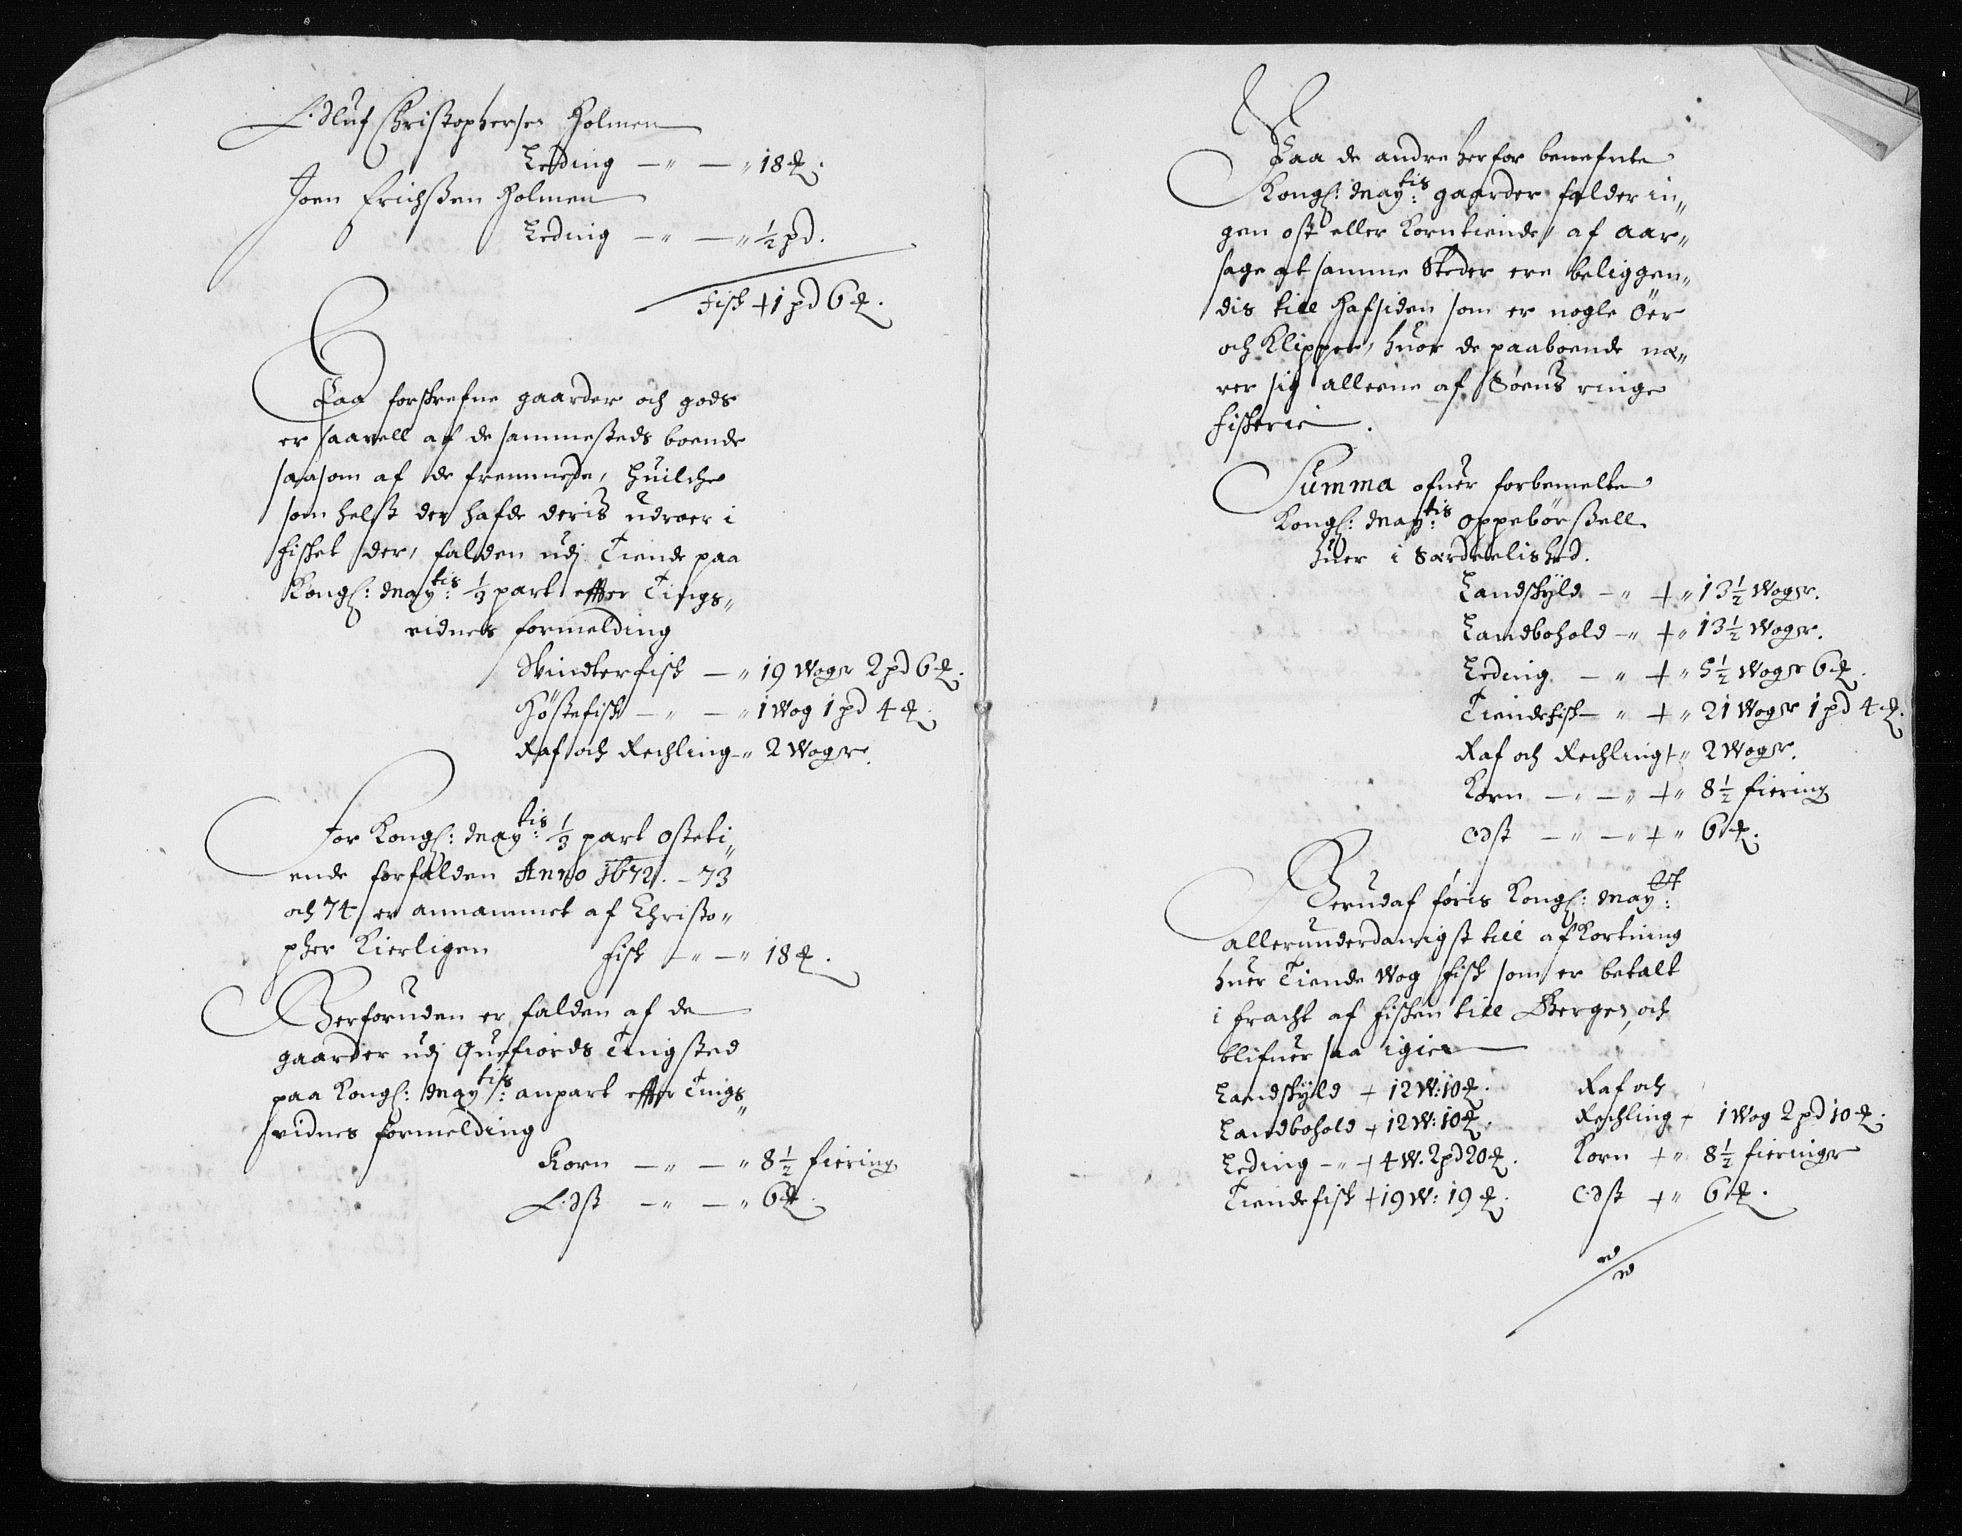 Oluf Christophersen Holmen
Leding — " — " 18 ℔.
Joen Erichsßen Holmen
Leding — " — " ½ pd.
Fisk + 1 pd 6 ℔.
Paa forschrefne gaarder och gods
er saavell af de sammesteds boende
saasom af de fremmede, huilche
som helst der hafde deris udroer i
fisket der, falden udj Tiende paa
Kongl: May:tis ⅓ part effter Tings„
vidnes formelding
Vindterfisk — " 19 Woger 2 pd 6 ℔.
Höstefisk — " — " 1 Wog 1 pd 4 ℔.
Raf och Rechling — " 2 Woger.
For Kongl: May:tis ⅓ part osteti„
ende forfalden Anno 1672. – 73
och 74 er annammet af Christo„
pher Kierligen Fisk — " — " 18 ℔.
Herforuden er falden af de
gaarder udj Quefiords Tingsted
paa Kongl: May:tis anpart effter Tings„
vidnes formelding
Korn — " — " 8½ fiering
Ost — " — " 6 ℔.
Paa de andre herfor benefnte
Kongl: May:tis gaarder falder in„
gen ost eller Korntiende, af aar„
sage at samme Steder ere beliggen„
dis till Hafsiden som er nogle Öer
och Klipper, huor de paaboende næ„
rer sig alleene af Söens ringe
fiskerie.
Summa ofuer forbemelte
Kongl: May:tis oppebörßell
huer i særdeelished.
Landskyld — " + " 13½ Woger.
Landbohold — " + " 13½ Woger.
Leding — " + " 5½ Woger 6 ℔.
Tiendefisk — " + " 21 Woger 1 pd 4 ℔.
Raf och Rechling + " 2 Woger.
Korn — " — " + " 8½ fiering
Ost — " — " + " 6 ℔.
Herudaf föris Kongl: May:tt
allerunderdanigst till afkortning
huer Tiende Wog fisk som er betalt
i fracht af fisken till Bergen, och
blifuer saa igien
Landskyld + 12 W: 10 ℔.
Landbohold + 12 W: 10 ℔.
Leding — " + 4 W. 2 pd 20 ℔.
Tiendefisk + 19 W: 19 ℔.
Raf och
Rechling + 1 Wog 2 pd 10 ℔.
Korn + " 8½ fieringer
Ost + " 6 ℔.